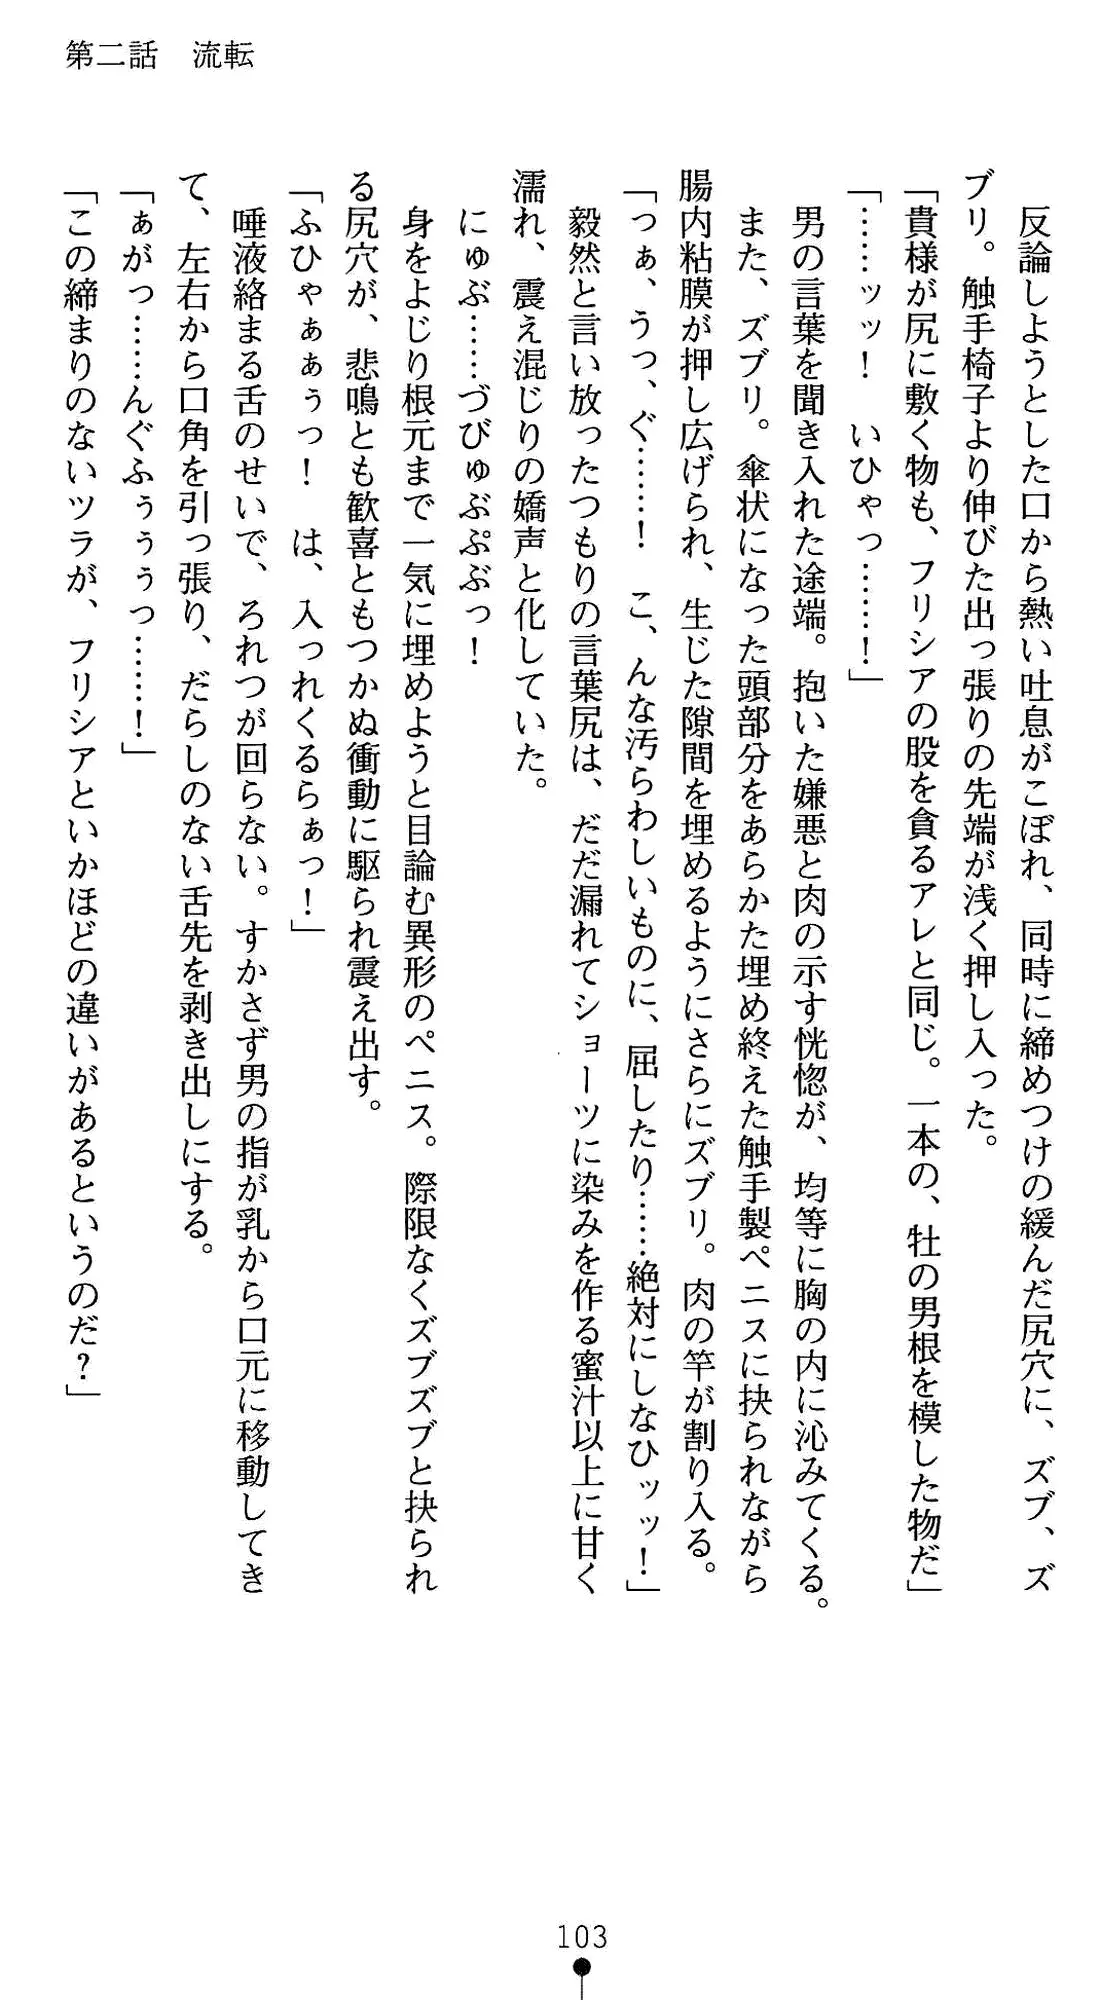 第二話　流転
　反論しようとした口から熱い吐息がこぼれ、同時に締めつけの緩んだ尻穴に、ズブ、ズ
ブリ。触手椅子より伸びた出っ張りの先端が浅く押し入った。
「貴様が尻に敷く物も、フリシアの股を貪るアレと同じ。一本の、牡の男根を模した物だ」
「……ッッ！　いひゃっ……！」
　男の言葉を聞き入れた途端。抱いた嫌悪と肉の示す恍惚が、均等に胸の内に沁みてくる。
　また、ズブリ。傘状になった頭部分をあらかた埋め終えた触手製ペニスに抉られながら
腸内粘膜が押し広げられ、生じた隙間を埋めるようにさらにズブリ。肉の竿が割り入る。
「っぁ、うっ、ぐ……！　こ、んな汚らわしいものに、屈したり……絶対にしなひッッ！」
　毅然と言い放ったつもりの言葉尻は、だだ漏れてショーツに染みを作る蜜汁以上に甘く
濡れ、震え混じりの嬌声と化していた。
　にゅぶ……づびゅぶぷぶっ！
　身をよじり根元まで一気に埋めようと目論む異形のペニス。際限なくズブズブと抉られ
る尻穴が、悲鳴とも歓喜ともつかぬ衝動に駆られ震え出す。
「ふひゃぁぁぅっ！　は、入っれくるらぁっ！」
　唾液絡まる舌のせいで、ろれつが回らない。すかさず男の指が乳から口元に移動してき
て、左右から口角を引っ張り、だらしのない舌先を剥き出しにする。
「ぁがっ……んぐふぅぅぅっ……！」
「この締まりのないツラが、フリシアといかほどの違いがあるというのだ？」
103